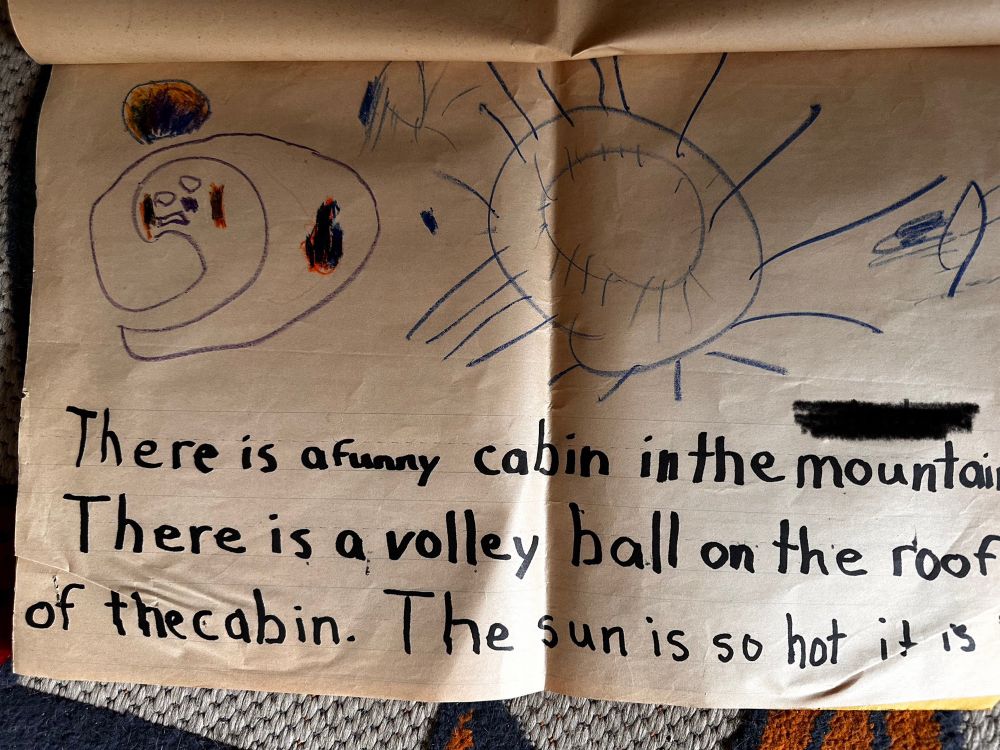 There is a funny cabin in the mountain
There is a volley ball on the roof
of the cabin. The sun is so hot it is